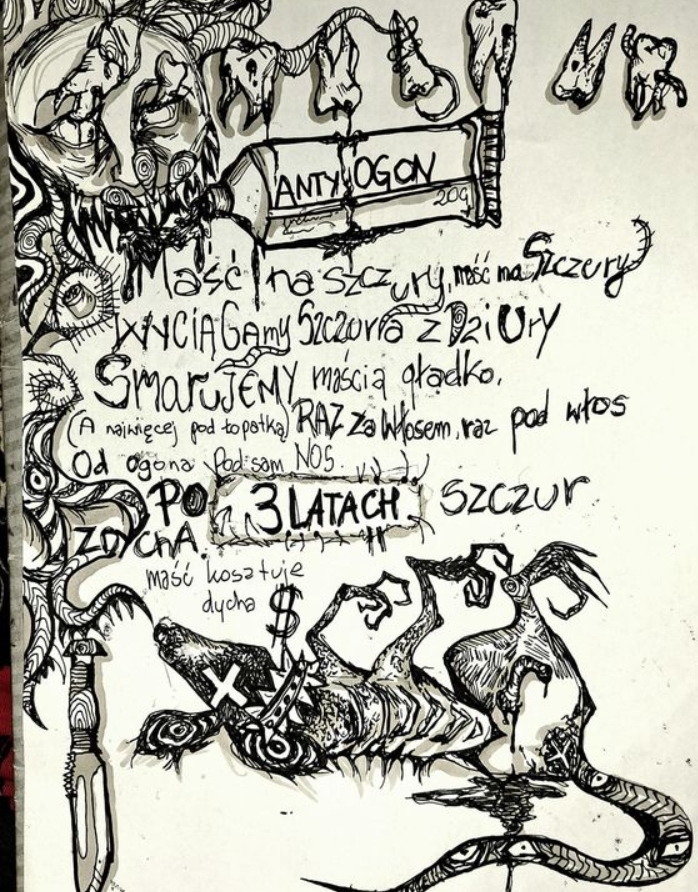 ANTY OGON
20g
Maść na szczury, maść na Szczury
WYCIĄGAmy Szczura z DziUry
SmarujEMY maścią gładko,
(A najwięcej pod łopatką) RAZ Za Włosem, raz pod włos
Od ogona Pod sam NOS.
PO 3 LATACH szczur
ZDYchA.
maść kosztuje
dycha $